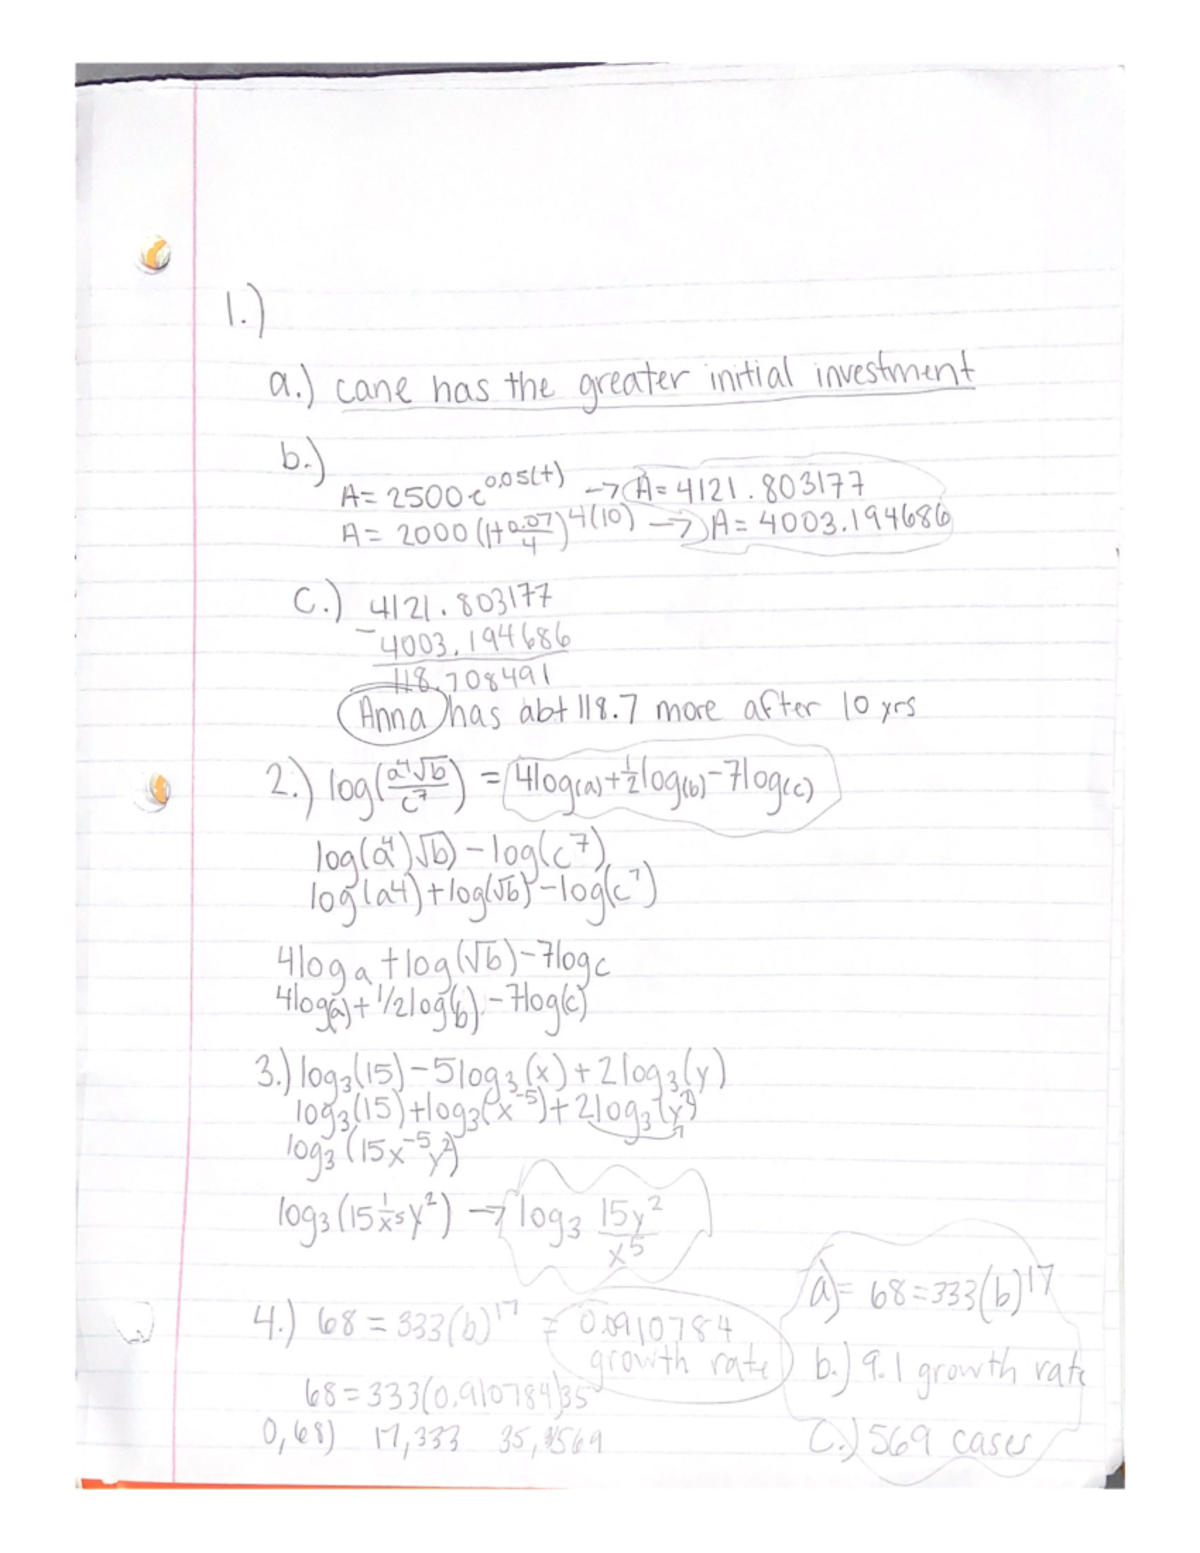 1.)
a.) cane has the greater initial investment
b.)
A = 2500 e^0.05(t) → A = 4121.803177
A = 2000 (1+0.07/4)^4(10) → A = 4003.194686
c.) 4121.803177
- 4003.194686
118.708491
Anna has abt 118.7 more after 10 yrs
2.) log(a^4√b/c^7) = 4log(a)+1/2log(b)-7log(c)
log(a^4)√b) - log(c^7)
log(a4)+log(√b) - log(c^7)
4log a + log(√b) - 7log c
4log(a) + 1/2log(b) - 7log(c)
3.) log3(15) - 5log3(x) + 2log3(y)
log3(15)+log3(x^-5)+2log3(y^2)
log3(15x^-5y^2)
log3(15 1/x^5 y^2) → log3 15y^2/x^5
4.) 68 = 333(b)^17 = 0.0910784
growth rate
68 = 333(0.910784)35
0,68) 17,333 35, 569
a) = 68=333(b)^17
b.) 9.1 growth rate
c.) 569 cases